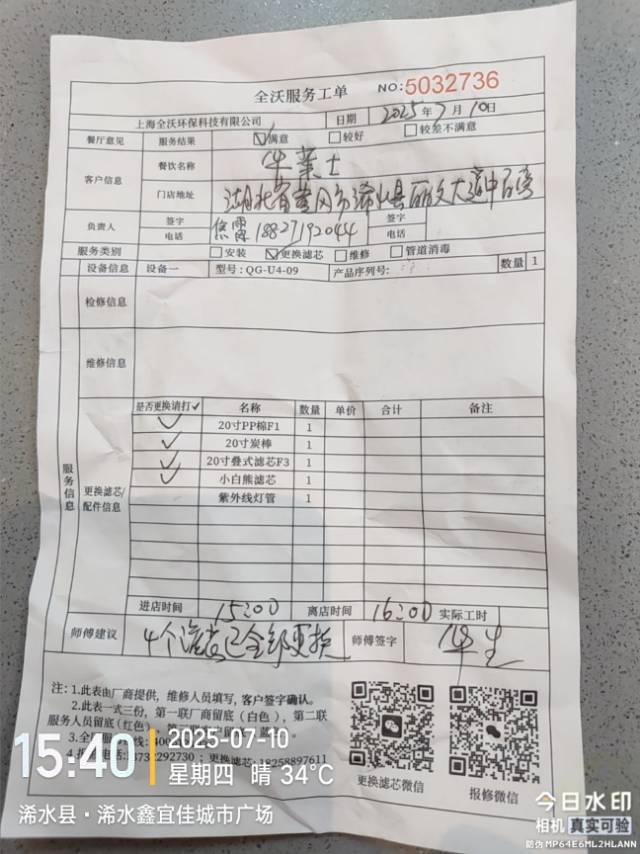 全沃服务工单
NO:5032736
上海全沃环保科技有限公司 日期 2025年7月10日
餐厅意见 服务结果 ☑满意 □较好 □较差不满意
客户信息 餐饮名称 华莱士
门店地址 湖北省黄冈市浠水县丽文大道中百旁
负责人 签字 签字
电话 18827192044 电话
服务类别 □安装 ☑更换滤芯 □维修 □管道消毒
设备信息 设备一 型号:QG-U4-09 产品序列号: 数量 1
检修信息
维修信息
服务信息
更换滤芯/配件信息
是否更换请打✓ 名称 数量 单价 合计 备注
✓ 20寸PP棉F1 1
✓ 20寸炭棒 1
✓ 20寸叠式滤芯F3 1
✓ 小白熊滤芯 1
紫外线灯管 1
进店时间 15:00 离店时间 16:00 实际工时
师傅建议 4个滤芯已全部更换 师傅签字
注:1.此表由厂商提供,维修人员填写,客户签字确认。
2.此表一式三份,第一联厂商留底(白色),第二联
服务人员留底(红色),
3.全
更换滤芯:18258897611
更换滤芯微信 报修微信
15:40
2025-07-10
星期四 晴 34℃
浠水县·浠水鑫宜佳城市广场
今日水印
相机 真实可验
防伪 MP64E6ML2HLANN